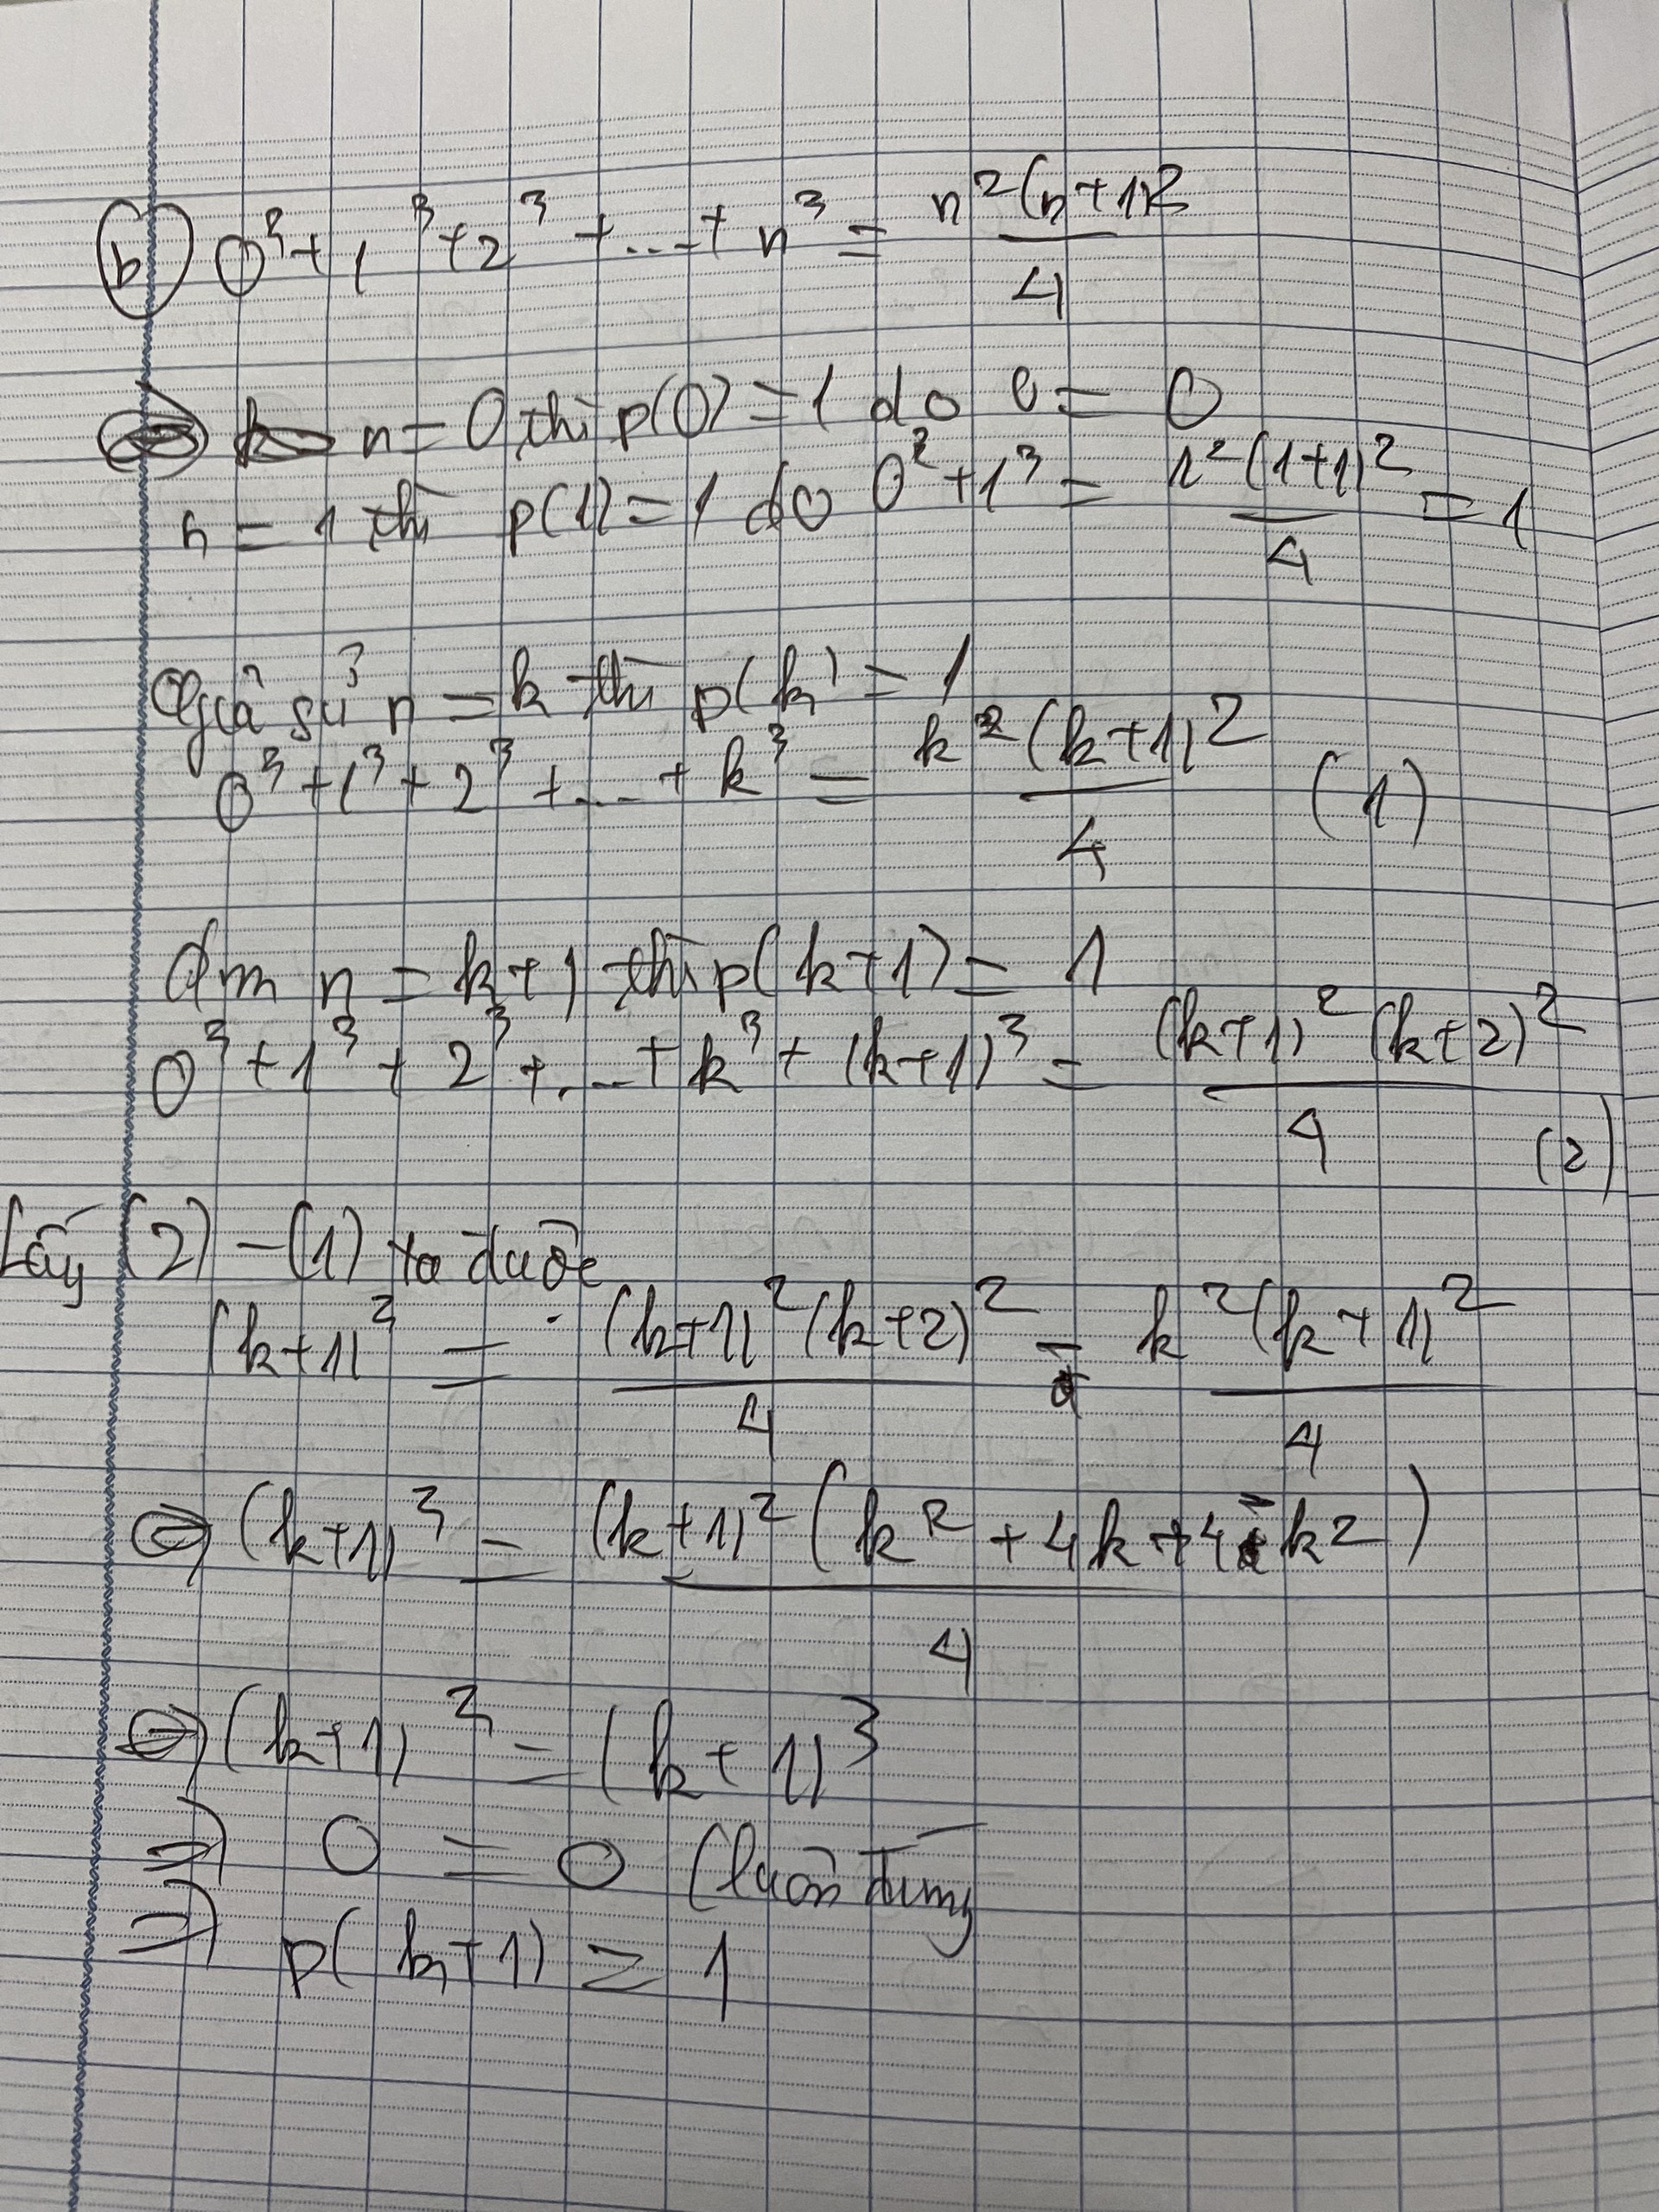 b) 0³ + 1³ + 2³ + ... + n³ = n²(n+1)²/4
n = 0 thì p(0) = 1 do 0 = 0
n = 1 thì p(1) = 1 do 0² + 1³ = 1²(1+1)²/4 = 1
Giả sử n = k thì p(k) = 1
0³ + 1³ + 2³ + ... + k³ = k²(k+1)²/4 (1)
n = k+1 thì p(k+1) = 1
0³ + 1³ + 2³ + ... + k³ + (k+1)³ = (k+1)²(k+2)²/4 (2)
Lấy (2) - (1) ta được
(k+1)³ = (k+1)²(k+2)²/4 - k²(k+1)²/4
⇔ (k+1)³ = (k+1)²(k² + 4k + 4 - k²)/4
⇔ (k+1)³ = (k+1)³
⇒ 0 = 0 (luôn đúng
⇒ p(k+1) = 1